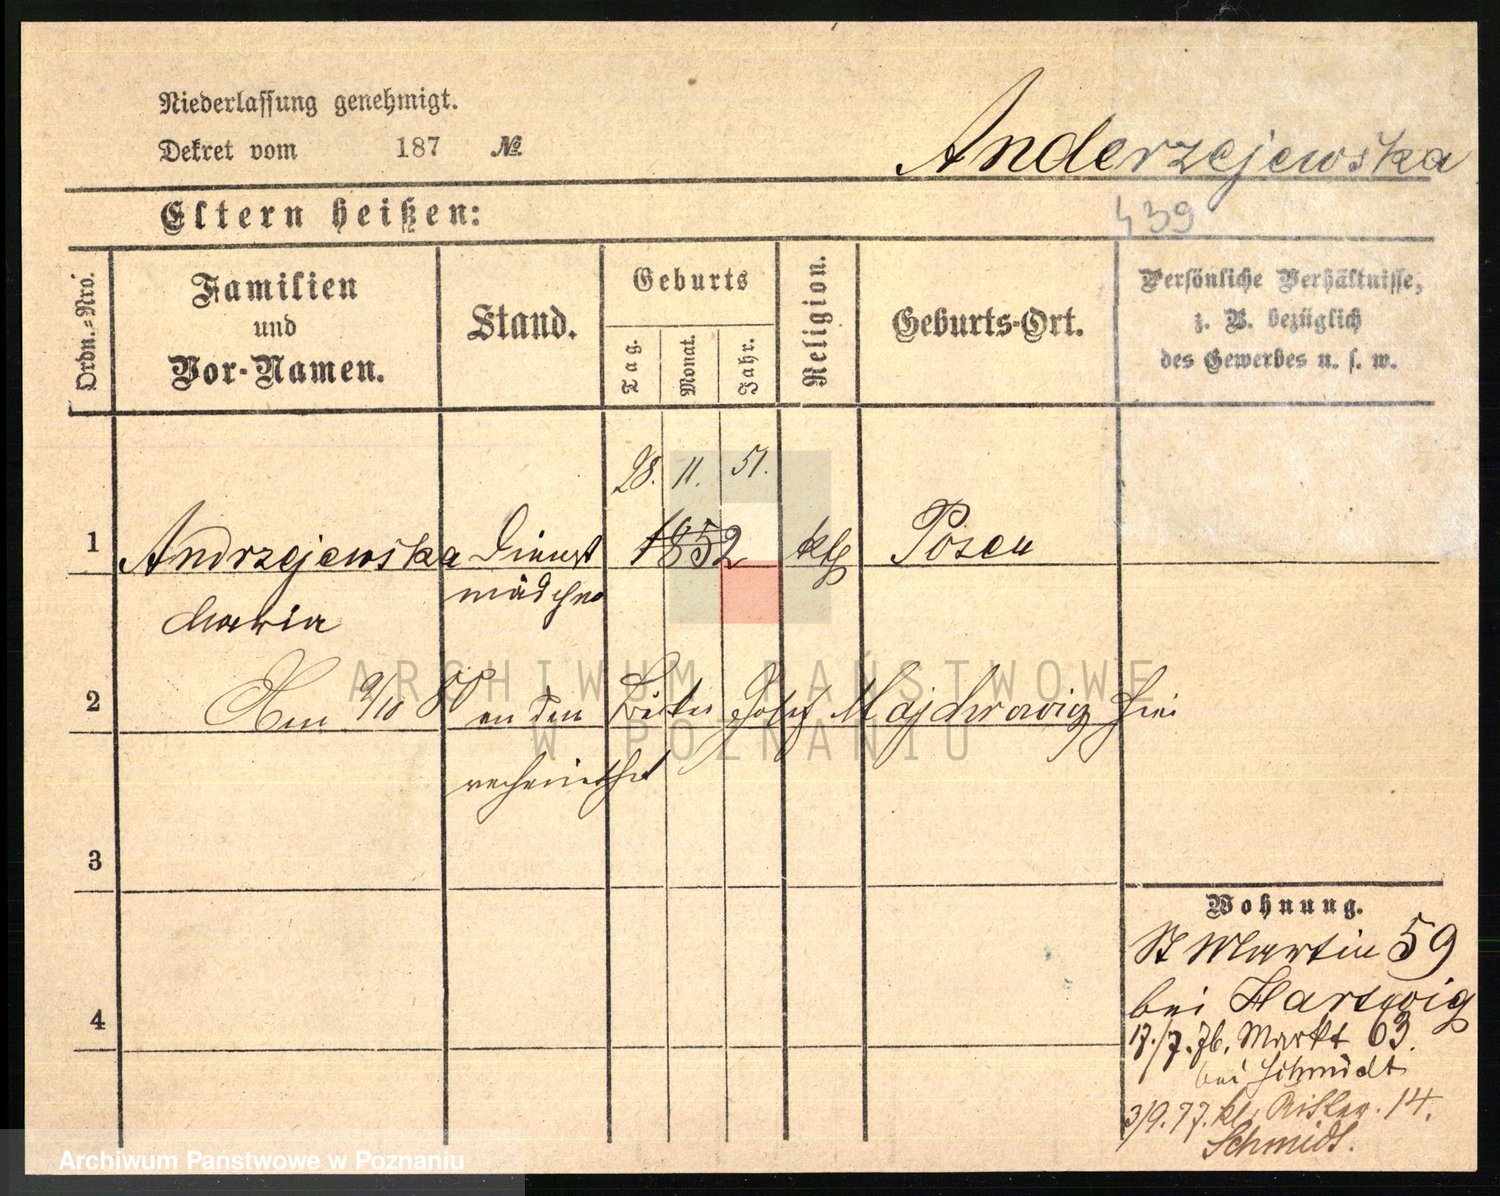 Niederlassung genehmigt.
Dekret vom 187 №
Anderzejewska
Eltern heißen:
439
Ordn.=Nro.
Familien
und
Vor-Namen.
Stand.
Geburts
Tag.
Monat.
Jahr.
Religion.
Geburts-Ort.
Persönliche Verhältnisse,
z. B. bezüglich
des Gewerbes u. s. w.
28. 11. 51.
1 Andrzejewska Dienst 1852 kth Posen
mädchen
Maria
2 Am 9/10 80 an den Josef hier
verheirathet
3
4
Wohnung.
St Martin 59
bei Hartwig
17./7. 76. Markt 63.
bei Schmidt
3/9. 77. kl. Ritter. 14.
Schmidt.
ARCHIWUM PAŃSTWOWE
W POZNANIU
Archiwum Państwowe w Poznaniu